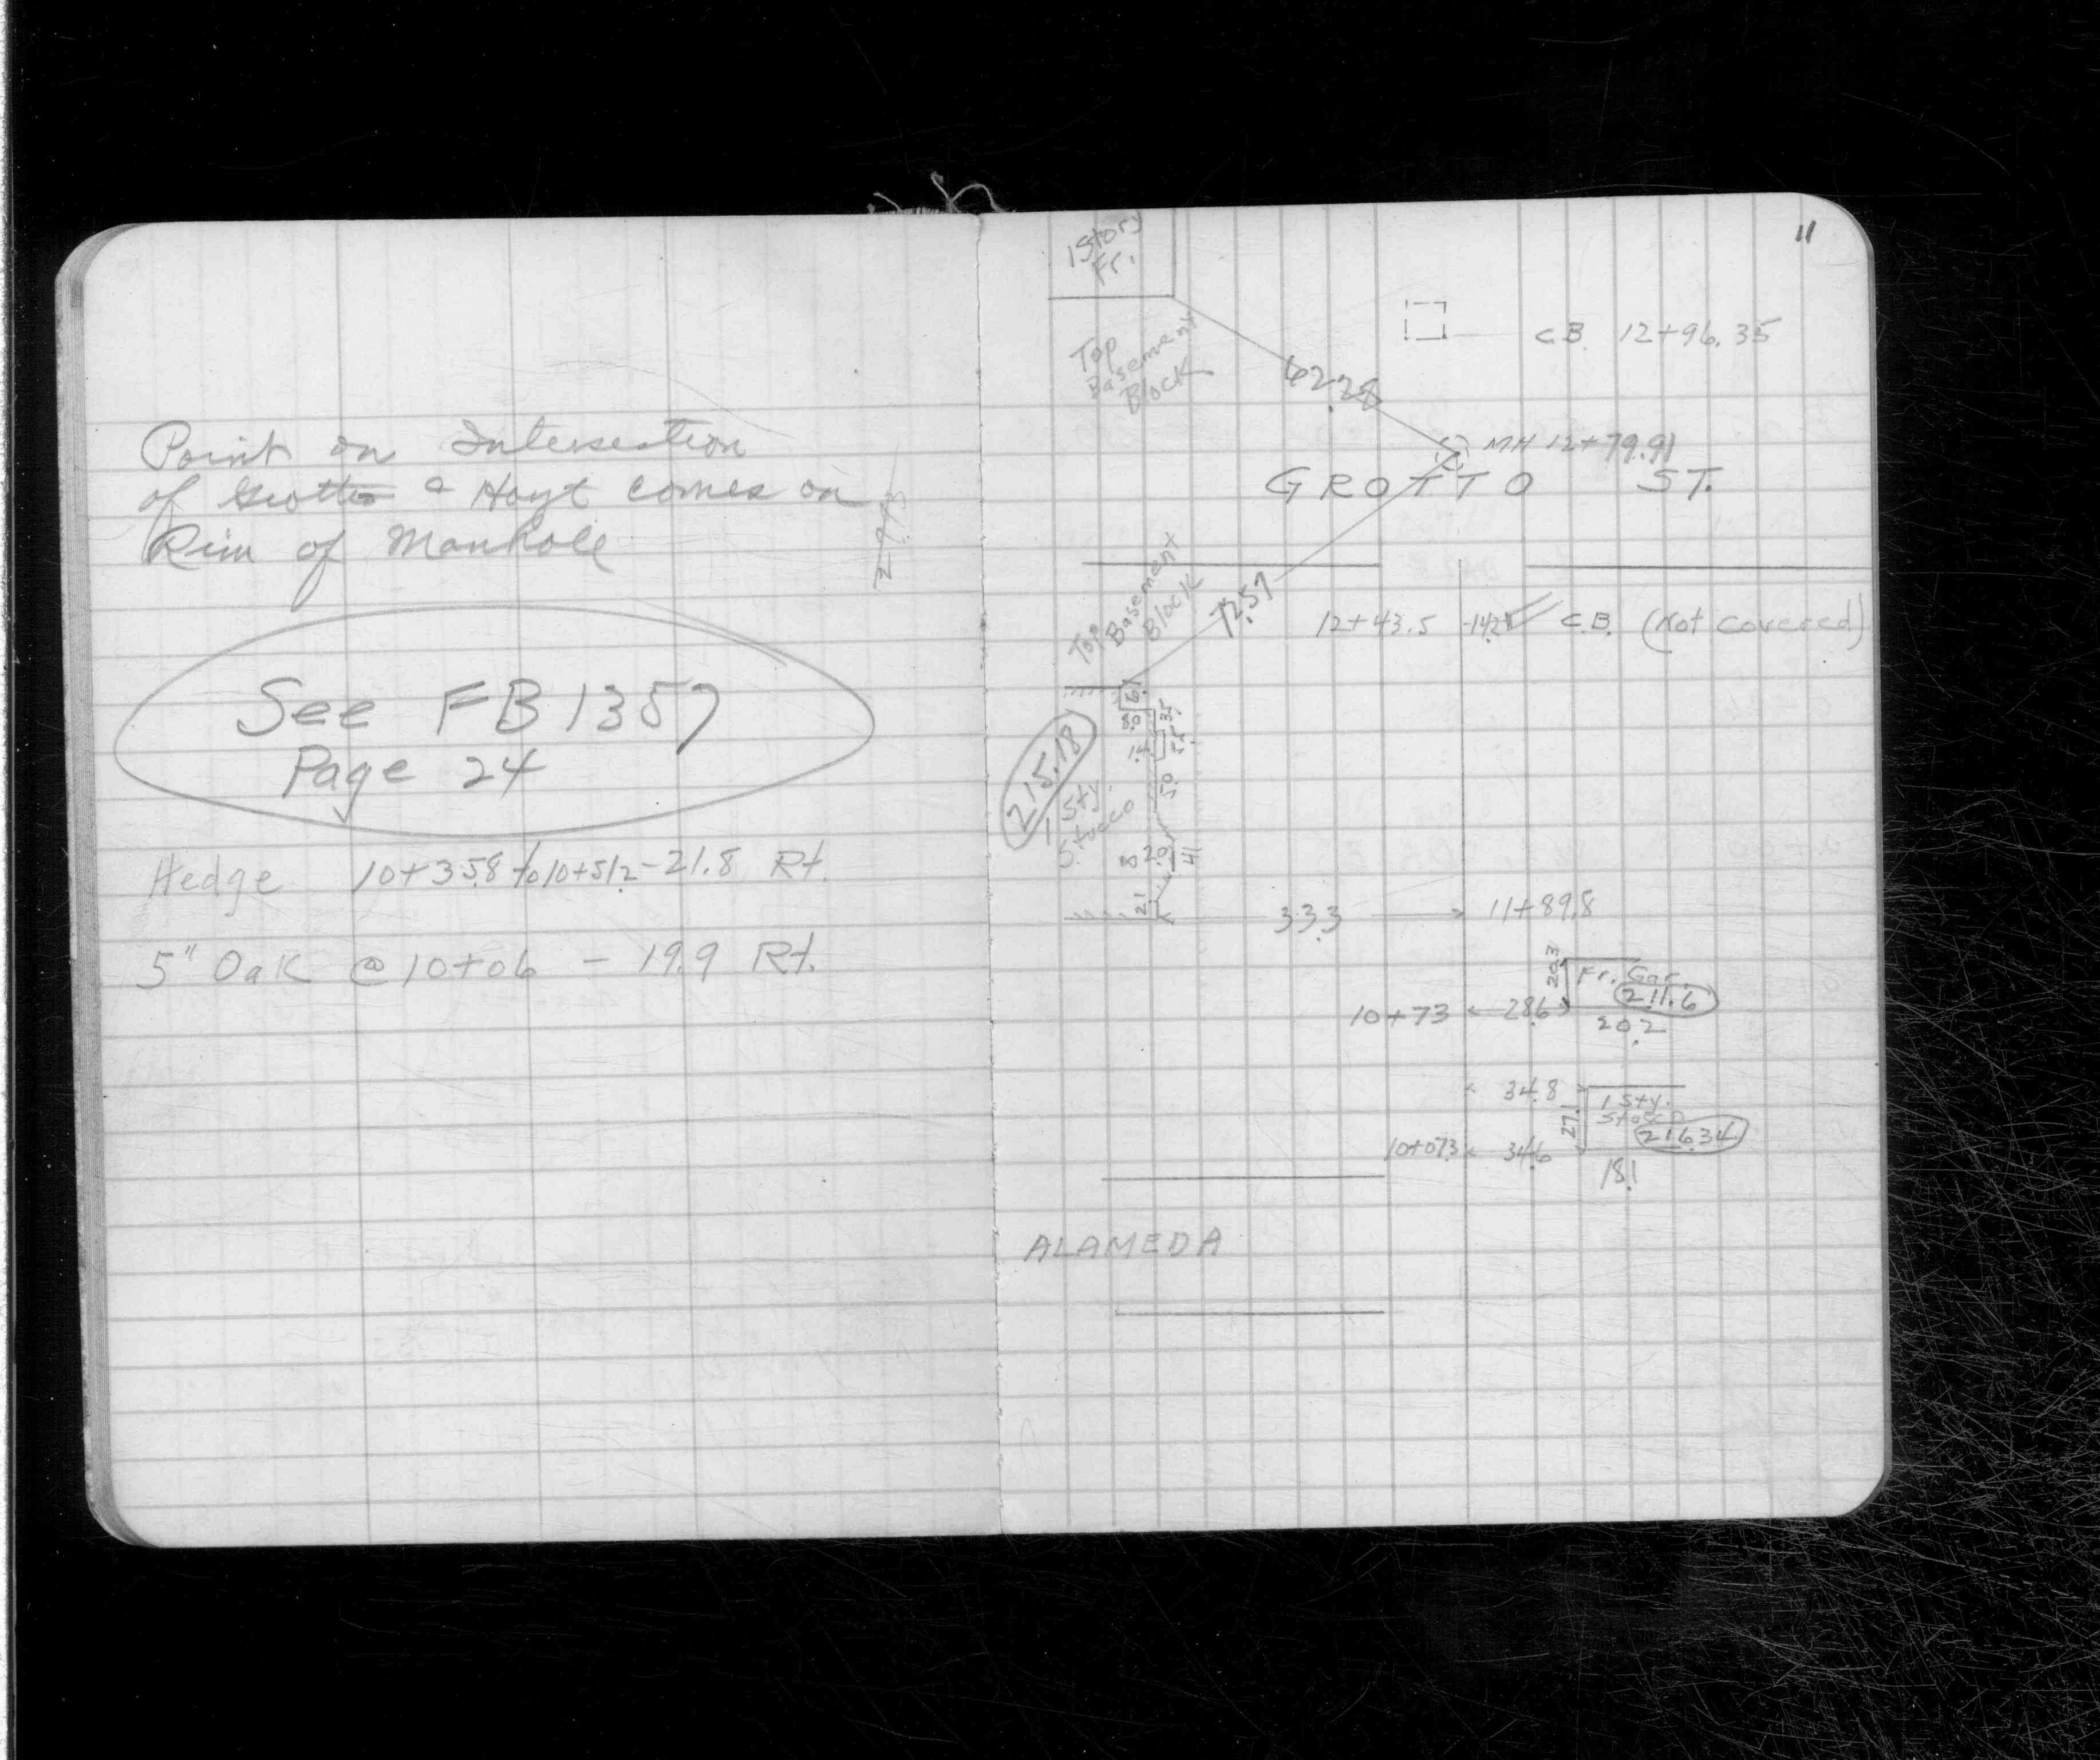 Point on Intersection
of Grotto & Hoyt comes on
Rim of Manhole
See FB 1357
Page 24
Hedge 10+35.8 to 10+51.2 - 21.8 Rt.
5" Oak @ 10+06 - 19.9 Rt.
11
1 Story
Fr.
C.B. 12+96.35
Top
Basement
Block
62.28
MH 12+79.91
GROTTO ST.
Top
Basement
Block
72.57
12+43.5 -14.2 C.B. (Not covered)
6.1
8.0
3.5
5.5
5.0
215.18
1 Sty.
Stucco
2.0
4.1
2.1
33.3 11+89.8
20.3
Fr. Gar.
211.6
10+73 28.6
20.2
34.8
27.1
1 Sty.
Stucco
216.34
10+07.3 34.6
18.1
ALAMEDA